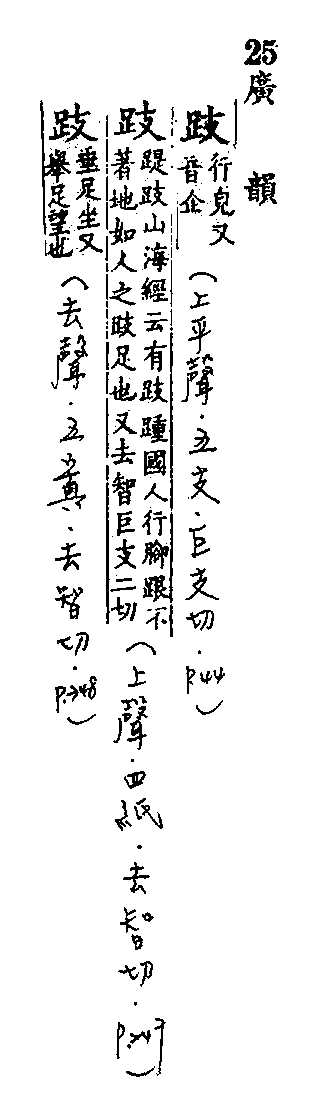 25廣 韻
跂行皃又音企(上平聲.五支.巨支切.P.44)
跂踶跂山海經云有跂踵國人行腳跟不著地如人之跂足也又去智巨支二切(上聲.四紙.去智切.P.247)
跂垂足坐又舉足望也(去聲.五寘.去智切.P.348)